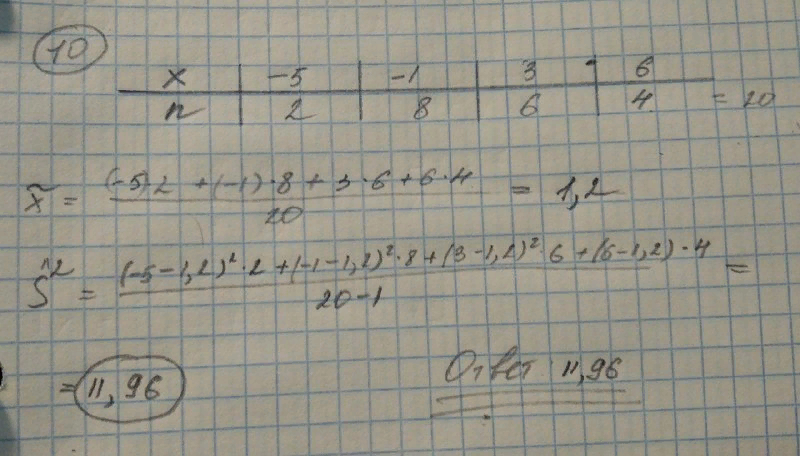 10
x | -5 | -1 | 3 | 6
n | 2 | 8 | 6 | 4 = 20
x̃ = ((-5)2 + (-1)·8 + 3·6 + 6·4) / 20 = 1,2
Ŝ² = ((-5-1,2)²·2 + (-1-1,2)²·8 + (3-1,2)²·6 + (6-1,2)·4) / (20-1) =
= 11,96
Ответ 11,96